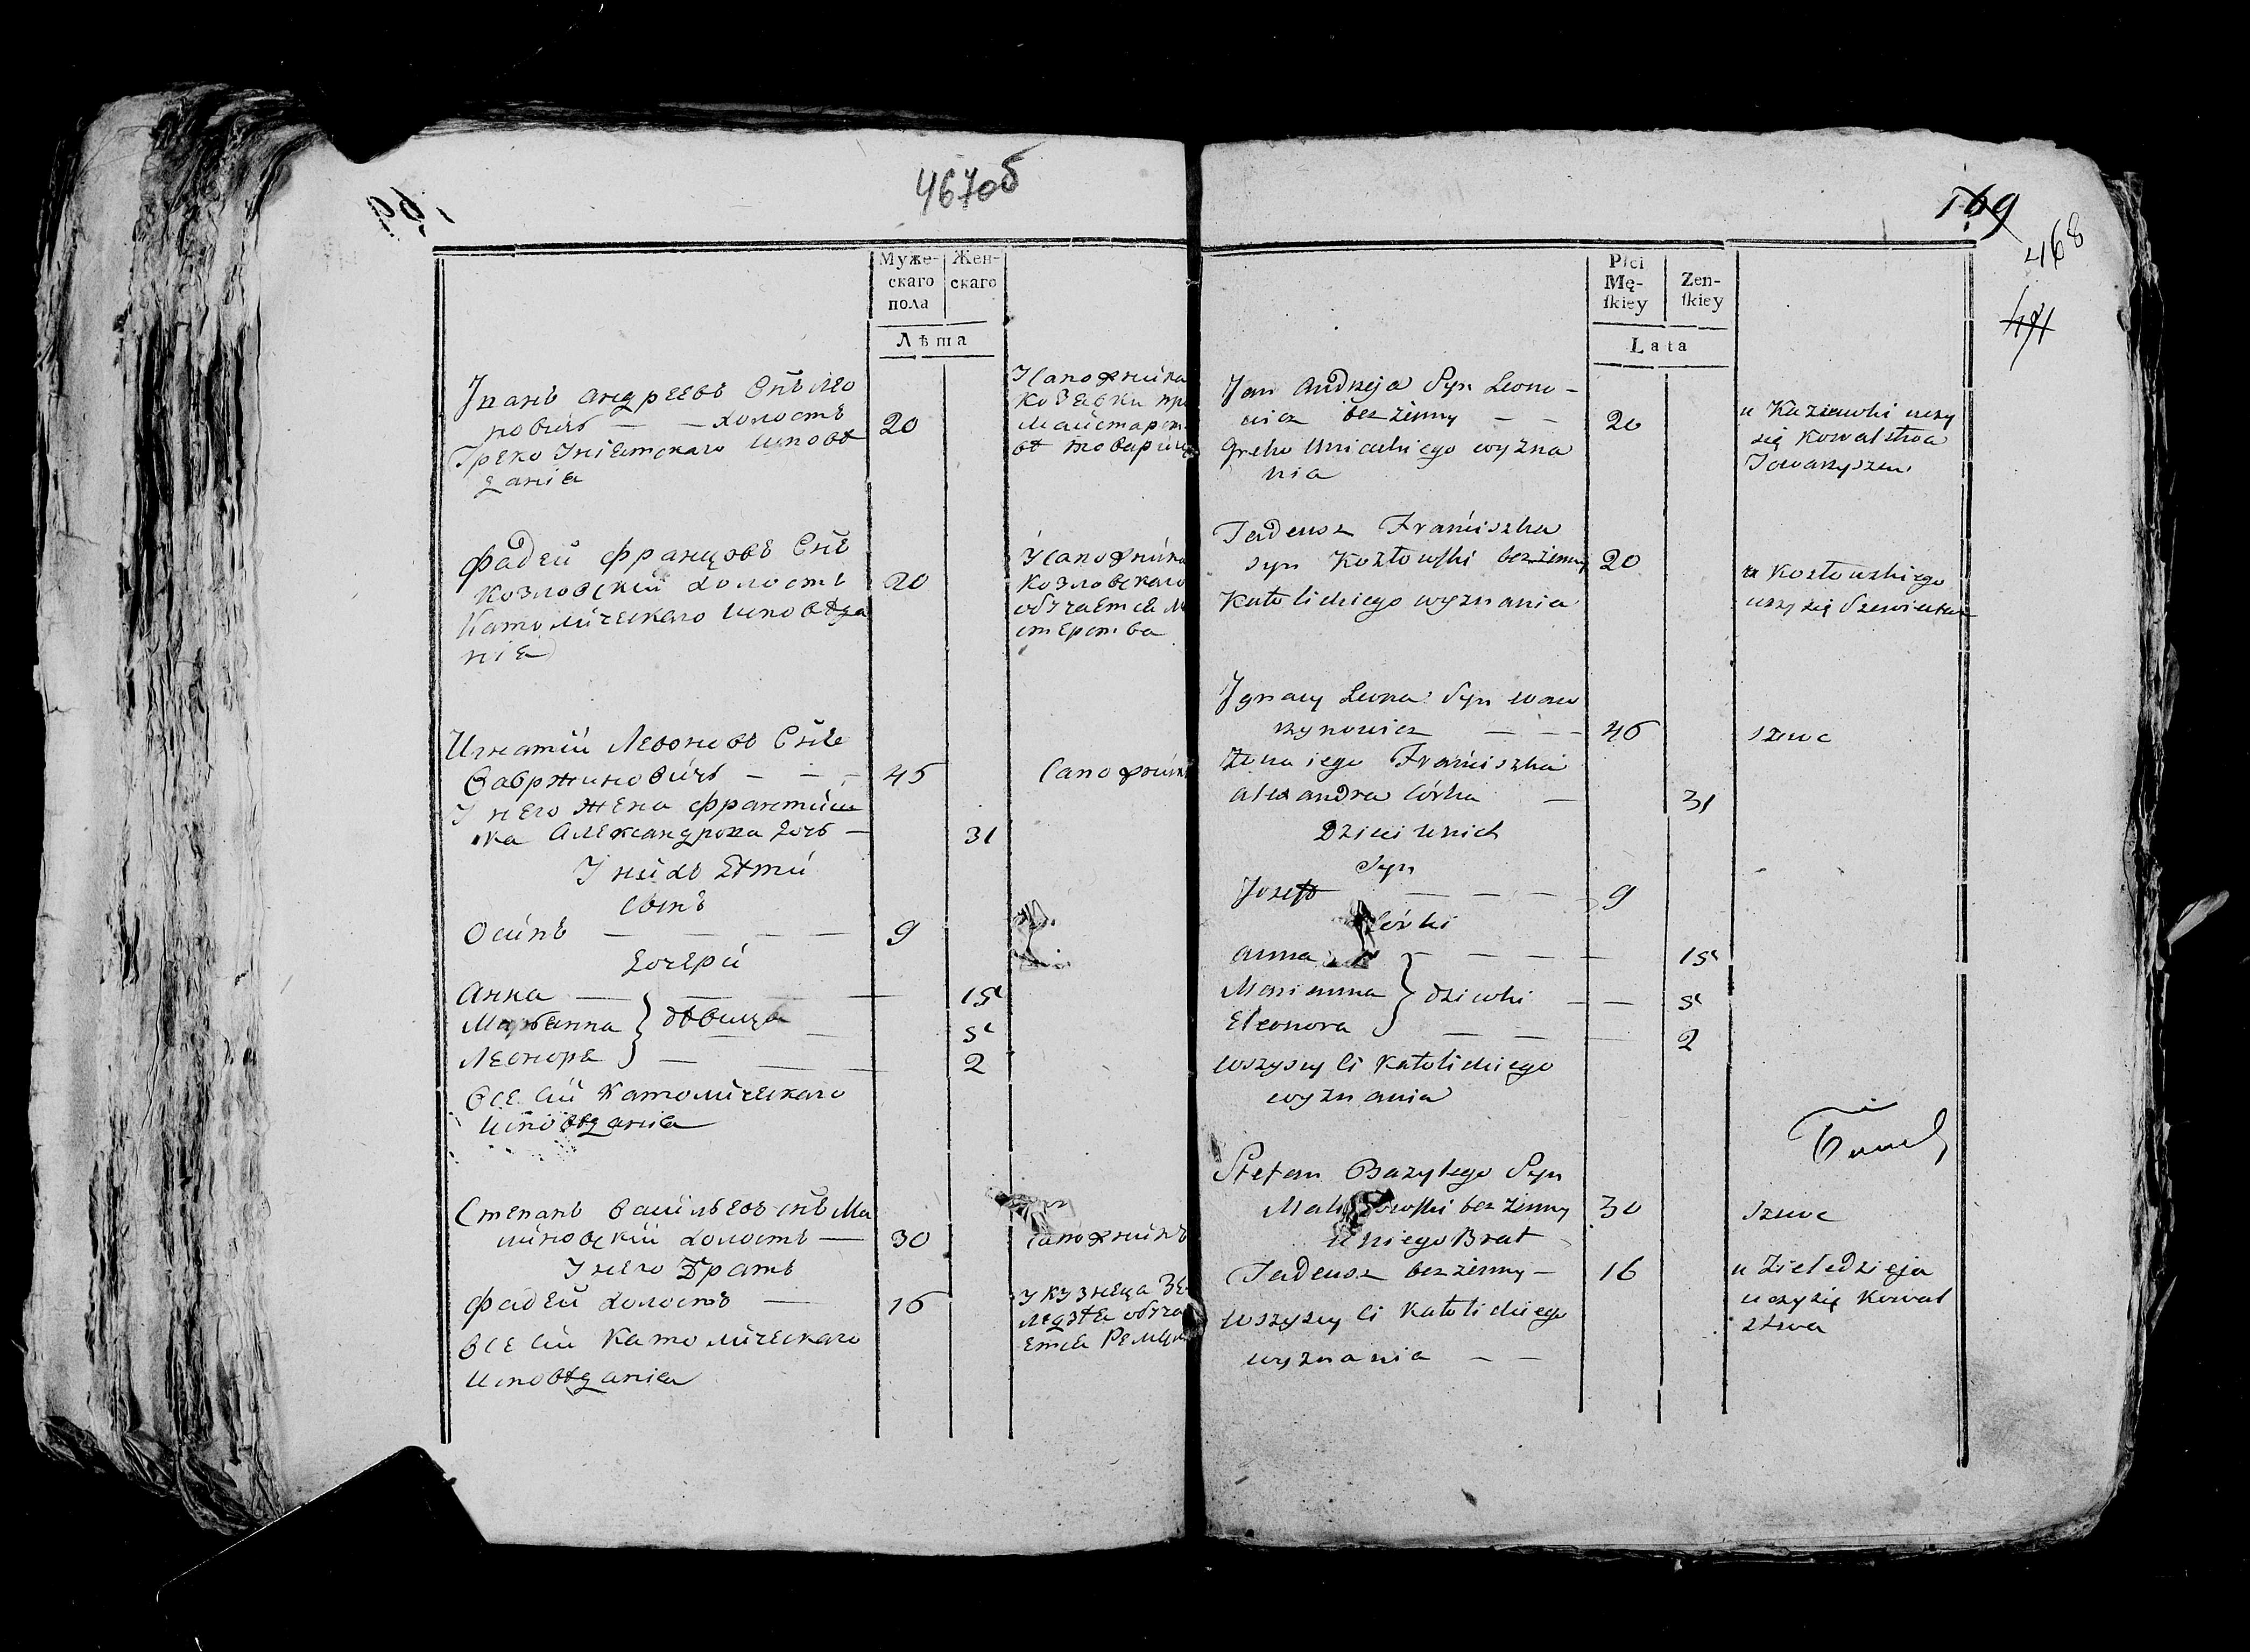 467об
Муже-
скаго
пола
Жен-
скаго
Лѣта
Иванъ Андреевъ Снъ Лео
новичъ — — холостъ 20
Греко Униятскаго исповѣ
дания
У сапожника
майстерст
въ товарищ
Фадей Францовъ Снъ
Козловский холостъ 20
Католическаго исповѣда
ния
У сапожника
Козловскаго
обучается ма
стерства
Игнатий Леоновъ Снъ
Вавржиновичъ — — — 45 Сапожник
У него жена Францишка
Александрова дочъ — 31
У нихъ дѣти
Сынъ
Осипъ — — — — 9
дочери
Анна — — — 15
Марьанна } дѣвица — 5
Леонора — — — 2
Все сии католическаго
исповѣдания
Степанъ Васильевъ снъ Ма
линовский холостъ — 30 сапожникъ
У него Братъ
Фадей холостъ — 16
Все сии католическаго
исповѣдания
У кузнеца Зе
ледзѣя обуча
ется
169
468
471
Płci
Mę-
ſkiey
Zen-
ſkiey
Lata
Jan Andrzeja Syn Leono-
wicz bezżenny — — 20
Greko Uniackiego wyzna
nia
uczy
się Kowalstwa
Towarzyszem
Tadeusz Franciszka
syn Kozłowſki bezżenny 20
Katolickiego wyznania
u Kozłowskiego
uczy się
Ignacy Leona Syn waw
rzynowicz — — — 46 szewc
Żona iego Franciszka
Alexandra Córka — 31
Dzieci u nich
Syn
Jozeff — — — 9
Córki
Anna — — — — 15
Marianna } dziewki — — 5
Eleonora — — — 2
wszyscy Ci Katolickiego
wyznania
Stefan Bazylego Syn
bezżenny 30 szewc
u niego Brat
Tadeusz bezżenny — 16
wszyscy Ci Katolickiego
wyznania — —
u Zieledzieja
uczy się Kowal
stwa